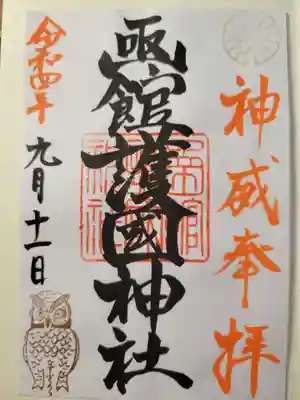 神威奉拝
函館護國神社
令和四年
九月十一日